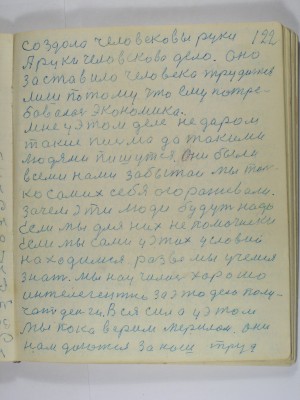 создала человековы руки 122
А руки человекова дело. Оно
заставило человека трудитися
лиш потому что ему потре-
бовалас экономика.
Мне у этом деле недаром
такие писма да такими
людями пишутся. Они были
всеми нами забытаи мы тол-
ко самих себя огораживали.
Зачем эти люди будут надо
если мы для них не помочники
если мы сами у этих условий
находимся. разве мы учимся
знат. мы научилис хорошо
интелегентно за это дело полу-
чат денги. Вся сила у этом
мы пока верим мерилом. они
нам даются за наш труд